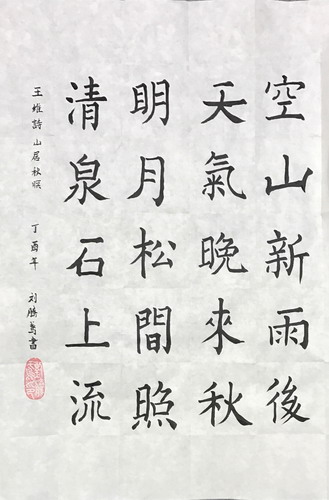 空山新雨後
天氣晚來秋
明月松間照
清泉石上流
王維詩 山居秋暝 丁酉年 刘勝 書